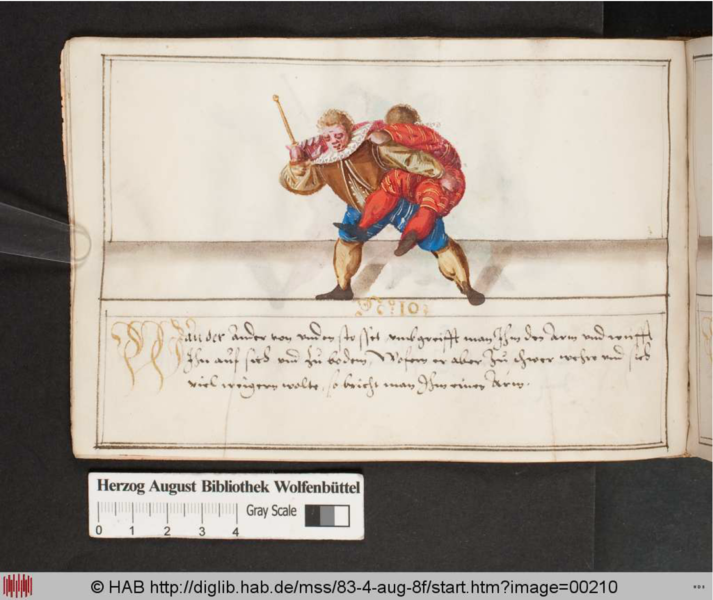 No: 10:
Wan der Ander von unden stosset, umbgreifft man Ihm den Arm und reüfft
Ihn auf sich und zu boden, Wofern er aber zu schwer wehre und sich
viel weigern wolte, so bricht man Ihm einen Arm.
Herzog August Bibliothek Wolfenbüttel
0 1 2 3 4
Gray Scale
© HAB http://diglib.hab.de/mss/83-4-aug-8f/start.htm?image=00210